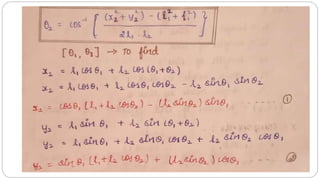 θ₂ = cos⁻¹ { (x₂² + y₂²) - (l₁² + l₂²) / 2l₁·l₂ }
[θ₁, θ₂] → To find
x₂ = l₁ cos θ₁ + l₂ cos (θ₁+θ₂)
x₂ = l₁ cos θ₁ + l₂ cos θ₁ cos θ₂ - l₂ sin θ₁ sin θ₂
x₂ = cos θ₁ [l₁ + l₂ cos θ₂) - (l₂ sin θ₂) sin θ₁ ①
y₂ = l₁ sin θ₁ + l₂ sin (θ₁+θ₂)
y₂ = l₁ sin θ₁ + l₂ sin θ₁ cos θ₂ + l₂ sin θ₂ cos θ₁
y₂ = sin θ₁ (l₁+l₂ cos θ₂) + (l₂ sin θ₂) cos θ₁ ②